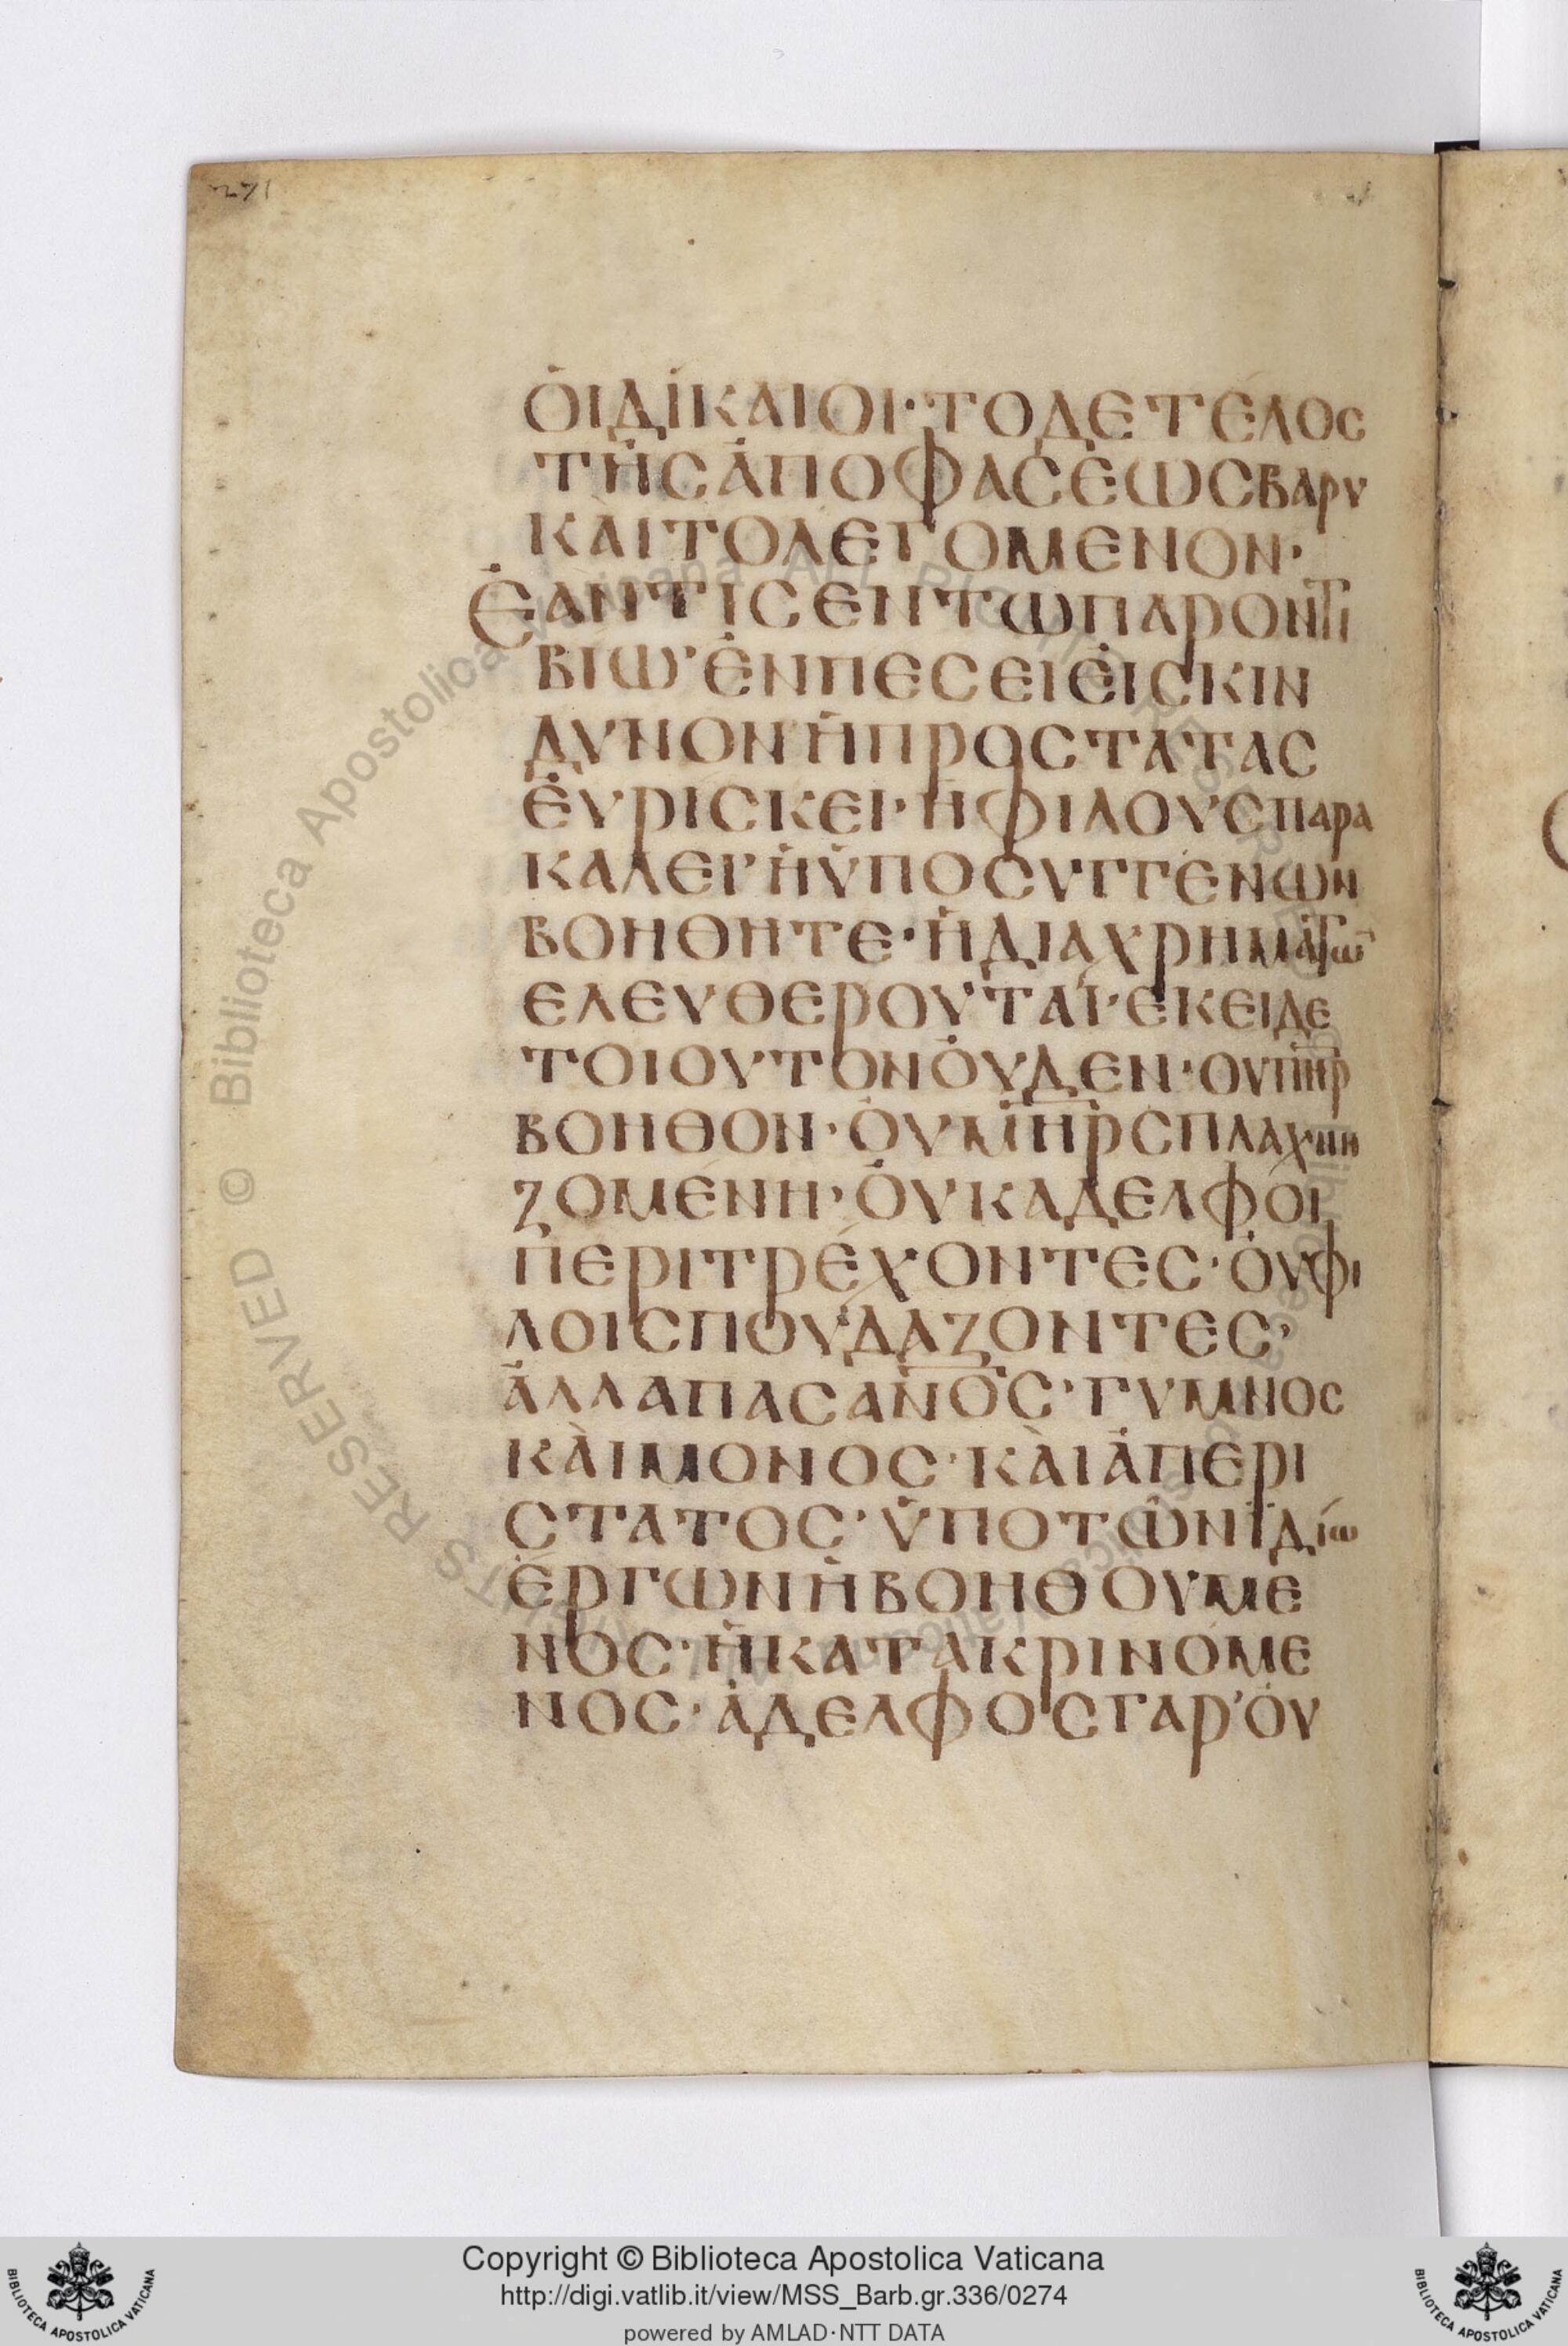 271
ὉΙΔΊΚΑΙΟΙ·ΤΟΔΕΤΕΛΟС
ΤΗ̇СἈΠΟΦΑСΕΩСΒΑΡΥ
ΚΑΙΤΟΛΕΓΟΜΕΝΟΝ·
ἘΑΝΤΙСΕΝΤΩΠΑΡΟΝΤΙ
ΒΙΩ·ἘΝΠΕСΕΙἘΙСΚΙΝ
ΔΥΝΟΝἨΠΡΟСΤΑΤΑС
ἙΥΡΙСΚΕΙ·ἨΦΙΛΟΥСΠΑΡΑ
ΚΑΛΕΙ·ἨὙΠΟСΥΓΓΕΝΩΝ
ΒΟΗΘΗΤΕ·ἨΔΙΑΧΡΗΜΑΤΩ̅
ΕΛΕΥΘΕΡΟΥΤΑΙ·ΕΚΕΙΔΕ
ΤΟΙΟΥΤΟΝὈΥΔΕΝ·ΟΥΠ̅Η̅Ρ̅
ΒΟΗΘΟΝ·ὈΥΜ̅Η̅Ρ̅СΠΛΑΧΝΗ
ΖΟΜΕΝΗ·ὈΥΚΑΔΕΛΦΟΙ
ΠΕΡΙΤΡΈΧΟΝΤΕС·ὈΥΦΙ
ΛΟΙСΠΟΥΔΑΖΟΝΤΕС·
ἈΛΛΑΠΑСΑ̅Ν̅Ο̅С̅·ΓΥΜΝΟС
ΚᾺΙΜΟΝΟС·ΚᾺΙἈΠΕΡΙ
СΤΑΤΟС·ὙΠΟΤΩ̇ΝΙΔΊΩ
ἘΡΓΩΝἨΒΟΗΘΟΥΜΕ
ΝΟС·ἨΚΑΤΑΚΡΙΝΟΜΕ
ΝΟС·ἈΔΕΛΦΟСΓΑΡ'ὈΥ
Biblioteca Apostolica Vaticana
RIGHTS RESERVED ©
Copyright © Biblioteca Apostolica Vaticana
http://digi.vatlib.it/view/MSS_Barb.gr.336/0274
powered by AMLAD·NTT DATA
BIBLIOTECA APOSTOLICA VATICANA
BIBLIOTECA APOSTOLICA VATICANA